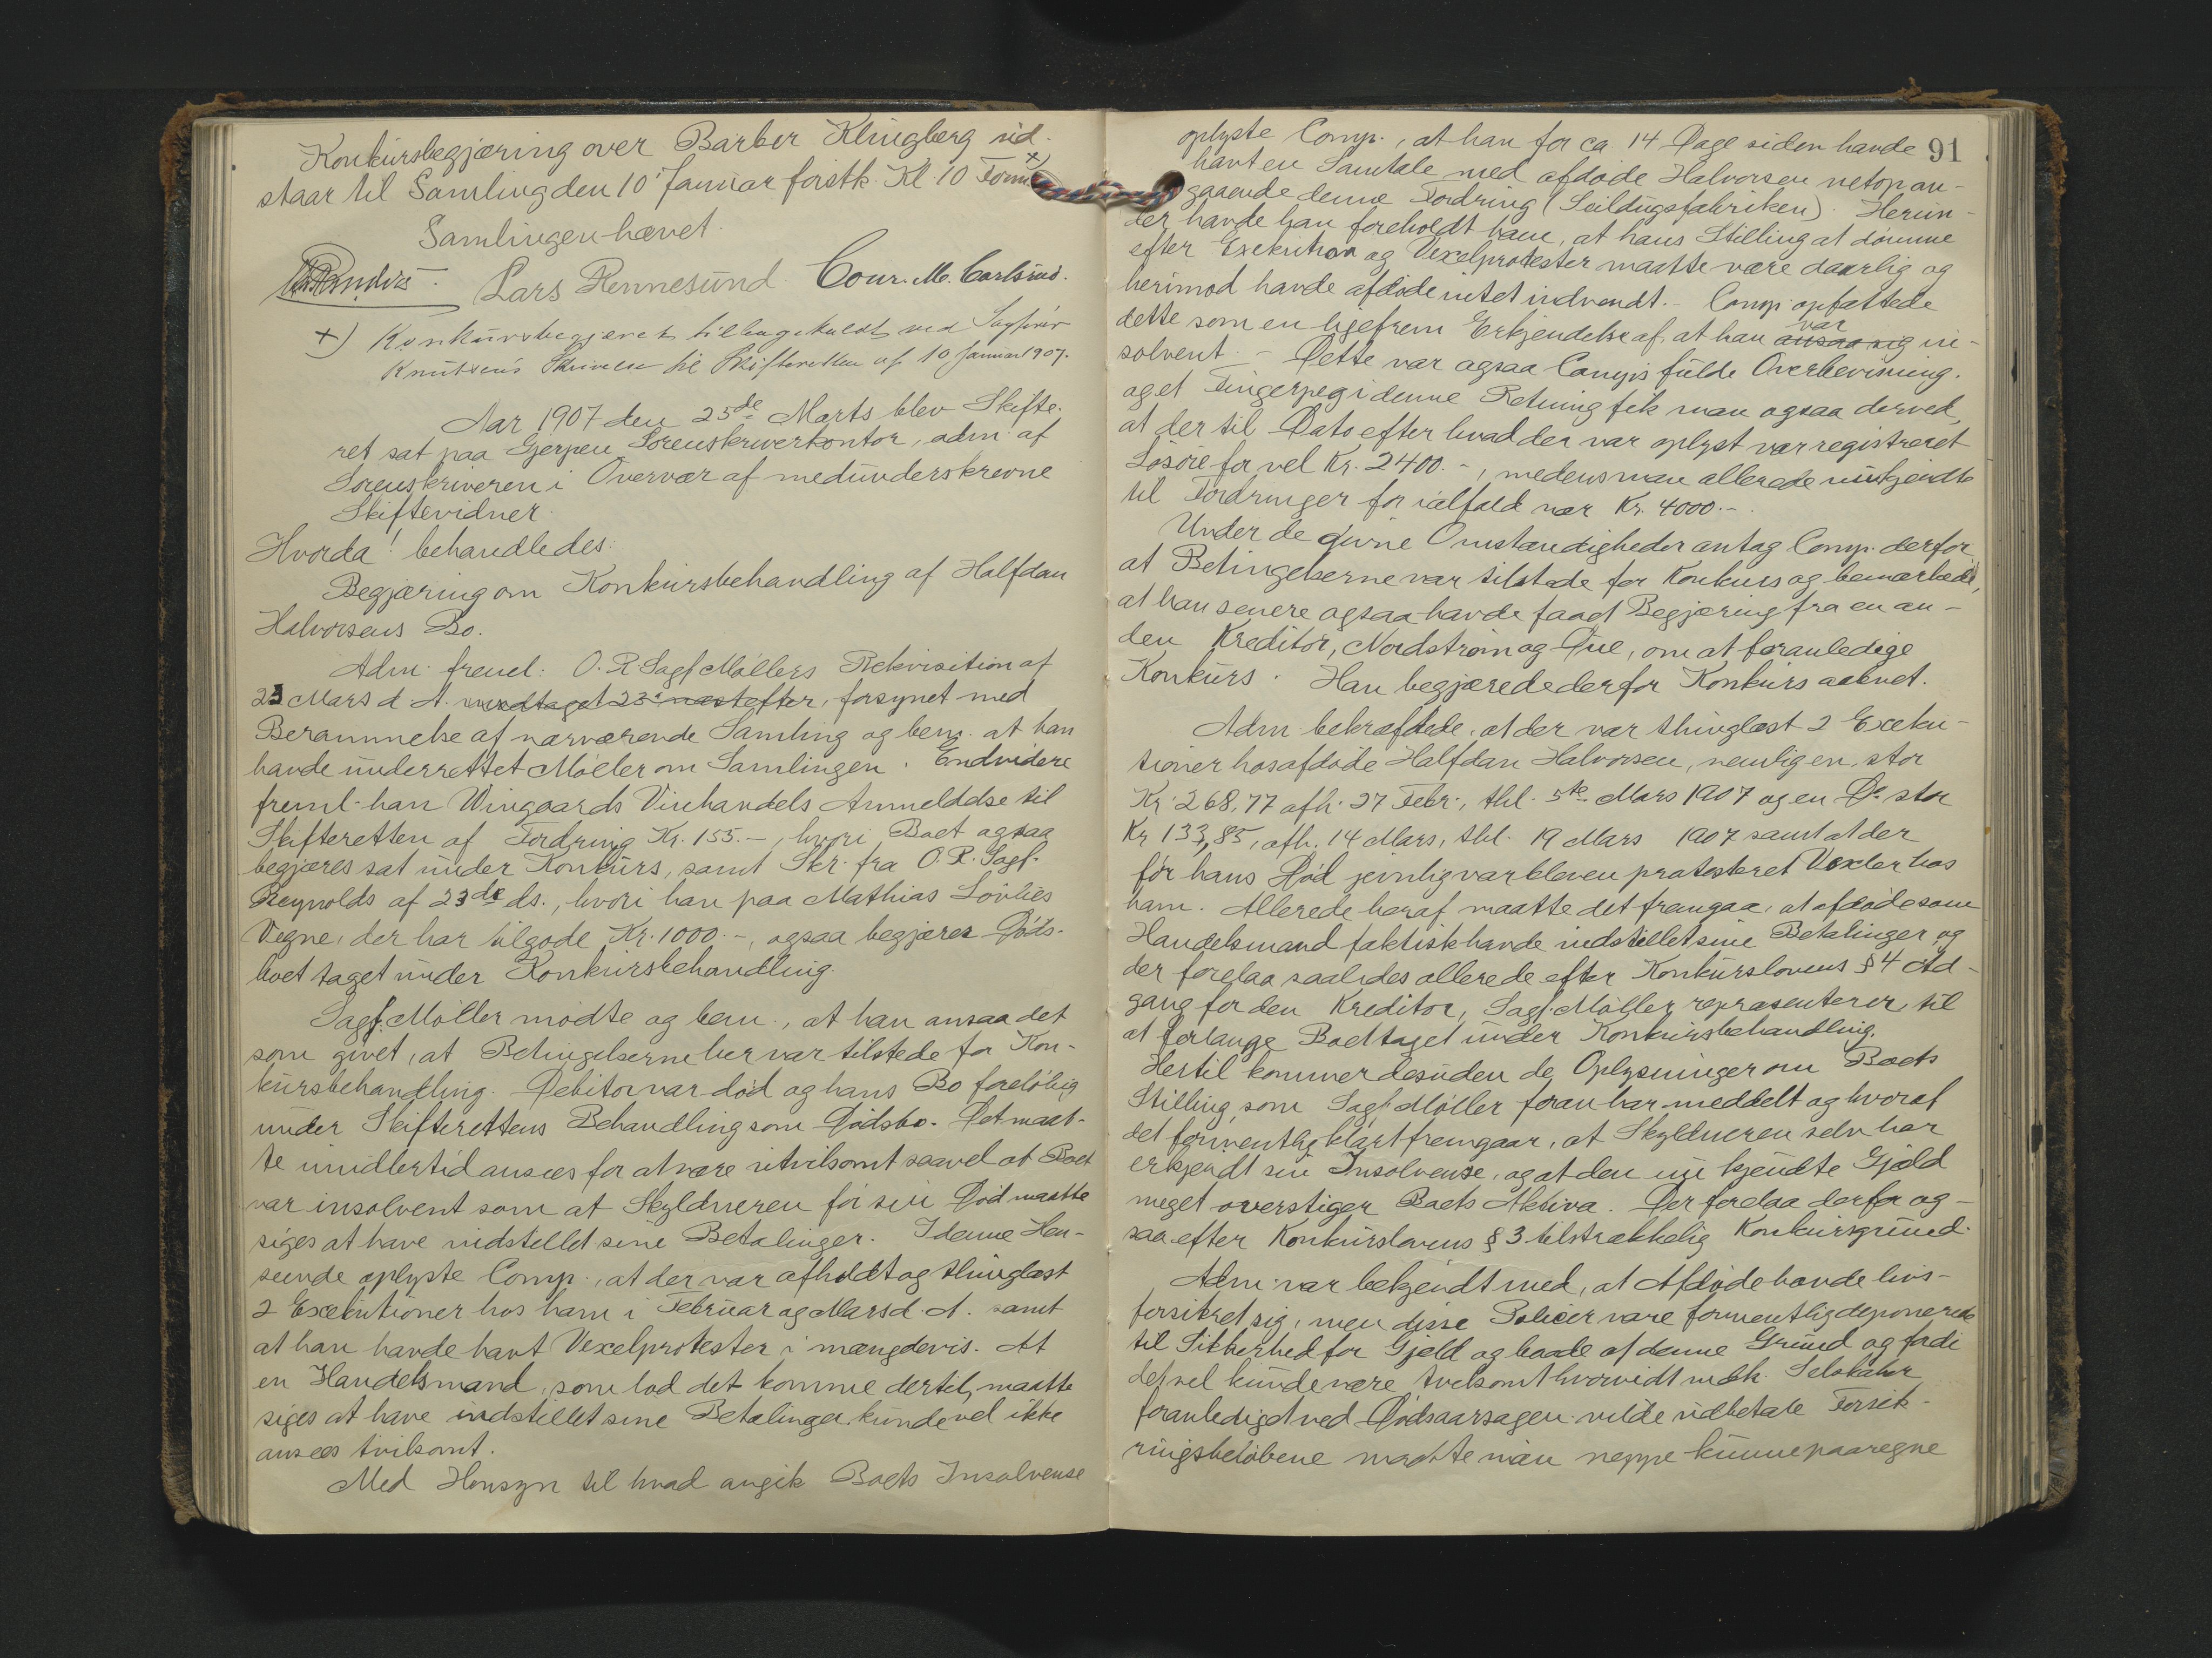 Konkursbegjæring over Barber Klingberg ud-
staar til Samling den 10 Januar førstk. Kl. 10 Form. +)
Samlingen hævet.
Lars Rennesund. Cour. M. Carlsrud.
+) Konkursbegjæret tilbagekaldt ved Sagfører
Knutzens Skrivelse til Skifteretten af 10 Januar 1907.
Aar 1907 den 25de Marts blev Skifte-
ret sat paa Gjerpen Sorenskriverkontor, adm. af
Sorenskriveren i Overvær af medunderskrevne
Skiftevidner.
Hvorda! behandledes:
Begjæring om Konkursbehandling af Halfdan
Halvorsens Bo.
Adm. freml. O. R. Sagf. Møllers Rekvisition af
23 Mars d. A. modtaget 23de næstefter, forsynet med
Berammelse af nærværende Samling og bem. at han
havde underrettet Møller om Samlingen. Endvidere
freml. han Wingaards Vinhandels Anmeldelse til
Skifteretten af Fordring Kr. 155.-, hvori Boet ogsaa
begjæres sat under Konkurs, samt Skr. fra O. R. Sagf.
Reynolds af 23de ds., hvori han paa Mathias Løvlies
Vegne, der har tilgode Kr. 1000.-, ogsaa begjærer Døds-
boet taget under Konkursbehandling.
Sagf. Møller mødte og bem., at han ansaa det
som givet, at Betingelserne her var tilstede for Kon-
kursbehandling. Debitor var død og hans Bo foreløbig
under Skifterettens Behandling som Dødsbo. Det maat-
te imidlertid ansees for at være utvilsomt saavel at Boet
var insolvent som at Skyldneren før sin Død maatte
siges at have indstillet sine Betalinger. I denne Hen-
seende oplyste Comp., at der var afholdt og thinglæst
2 Exekutioner hos ham i Februar og Mars d. A. samt
at han havde havt Vexelprotester i mængdevis. At
en Handelsmand, som lod det komme dertil, maatte
siges at have indstillet sine Betalinger kunde vel ikke
ansees tvilsomt.
Med Hensyn til hvad angik Boets Insolvense
91
oplyste Comp., at han for ca. 14 Dage siden havde
havt en Samtale med afdøde Halvorsen netop an-
gaaende denne Fordring (Seildugsfabriken). Herun-
der havde han foreholdt ham, at hans Stilling at dømme
efter Exekution og Vexelprotester maatte være daarlig og
herimod havde afdøde intet indvendt. - Comp. opfattede
dette som en ligefrem Erkjendelse af, at han ansaa sig var in-
solvent. - Dette var ogsaa Comp.s fulde Overbevisning.
og et Fingerpeg i denne Retning fik man ogsaa derved,
at der til Dato efter hvad der var oplyst var registreret
Løsøre for vel Kr. 2400.-, medens man allerede nu kjendte
til Fordringer for ialfald nær Kr. 4000.-.
Under de givne Omstændigheder antog Comp. derfor,
at Betingelserne var tilstede for Konkurs og bemærkede,
at han senere ogsaa havde faaet Begjæring fra en an-
den Kreditor, Nordstrøm og Due, om at foranledige
Konkurs. Han begjærede derfor Konkurs aabnet.
Adm. bekræftede, at der var thinglæst 2 Exeku-
tioner hos afdøde Halfdan Halvorsen, nemlig en, stor
Kr. 268,77 afh. 27 Febr., thl. 5te Mars 1907 og en Do stor
Kr 133,85, afh. 14 Mars, thl. 19 Mars 1907 samt at der
før hans Død jevnlig var bleven protesteret Vexler hos
ham. Allerede heraf maatte det fremgaa, at afdøde som
Handelsmand faktisk havde indstillet sine Betalinger og
der forelaa saaledes allerede efter Konkurslovens § 4 Ad-
gang for den Kreditor, Sagf. Møller repræsenterer, til
at forlange Boet taget under Konkursbehandling.
Hertil kommer desuden de Oplysninger om Boets
Stilling, som Sagf. Møller foran har meddelt og hvoraf
det formentlig klart fremgaar, at Skyldneren selv har
erkjendt sin Insolvense, og at den nu kjendte Gjæld
meget overstiger Boets Aktiva. Der forelaa derfor og-
saa efter Konkurslovens § 3 tilstrækkelig Konkursgrund.
Adm. var bekjendt med, at Afdøde havde livs-
forsikret sig, men disse Policer vare formentlig deponerede
til Sikkerhed for Gjæld og baade af denne Grund og fordi
det vel kunde være tvilsomt hvorvidt vedk. Selskaber
foranlediget ved Dødsaarsagen vilde udbetale Forsik-
ringsbeløbene maatte man neppe kunne paaregne